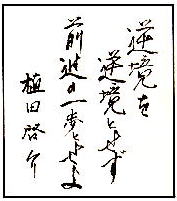 逆境を
逆境とせず
前進の一歩とせよ
植田啓介